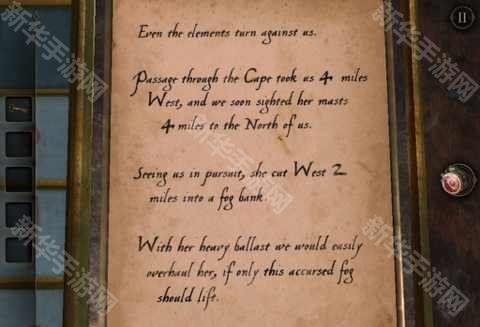 Even the elements turn against us.
Passage through the Cape took us 4 miles
West, and we soon sighted her masts
4 miles to the North of us.
Seeing us in pursuit, she cut West 2
miles into a fog bank.
With her heavy ballast we would easily
overhaul her, if only this accursed fog
should lift.
新华手游网
新华手游网
新华手游网
新华手游网
新华手游网